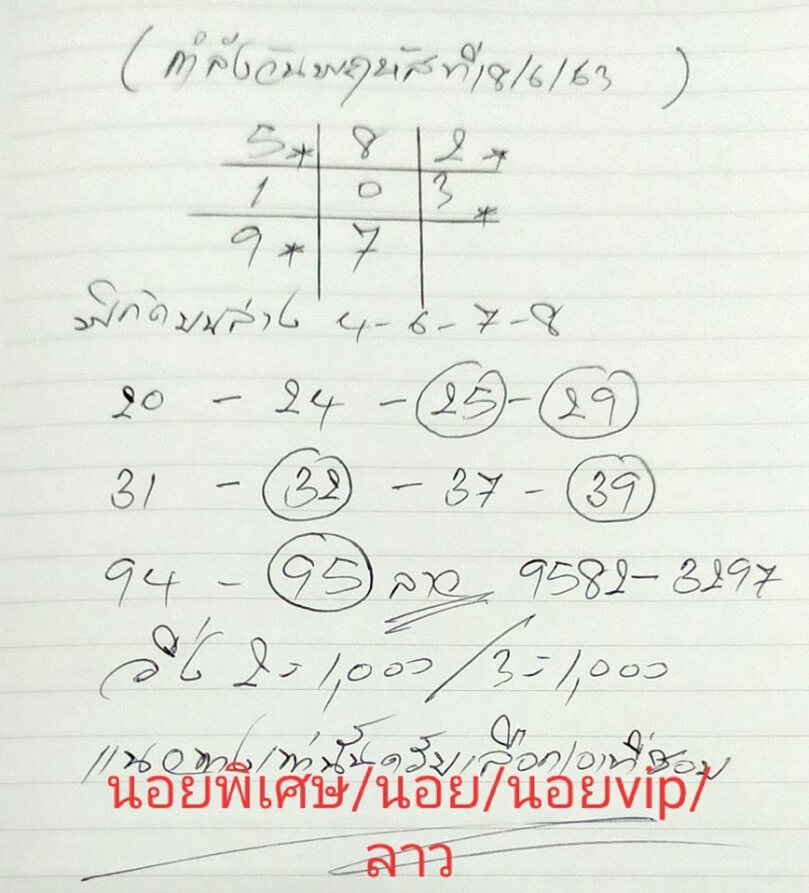 (กำลังวันพฤหัสที่18/6/63)
5* 8 2*
1 0 3*
9* 7
พิกัดบนล่าง 4-6-7-8
20 - 24 - 25 - 29
31 - 32 - 37 - 39
94 - 95 ลาว 9582-3297
วิ่ง 2=1,000/3=1,000
แนวทางเท่านั้นครับเลือกเอาที่ชอบ
นอยพิเศษ/นอย/นอยvip/
ลาว